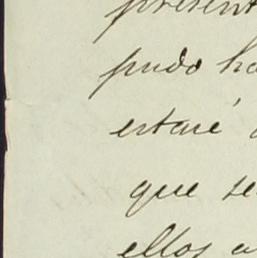 present
pudo ha
estaré a
que se
ellos a